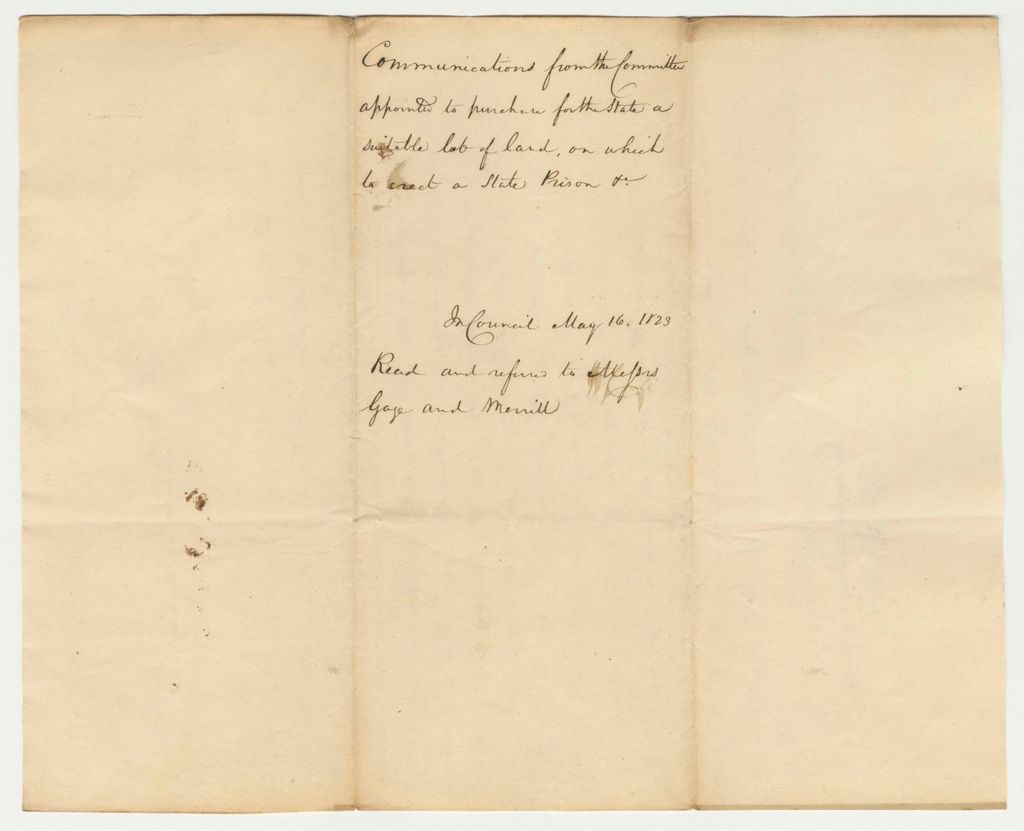 Communications from the Committee
appointed to purchase for the State a
suitable lot of land, on which
to erect a State Prison &c
In Council May 16. 1823
Read and referred to Messrs
Gage and Merrill